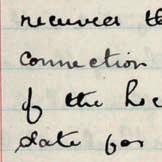 received th
connection
of the Loc
date for